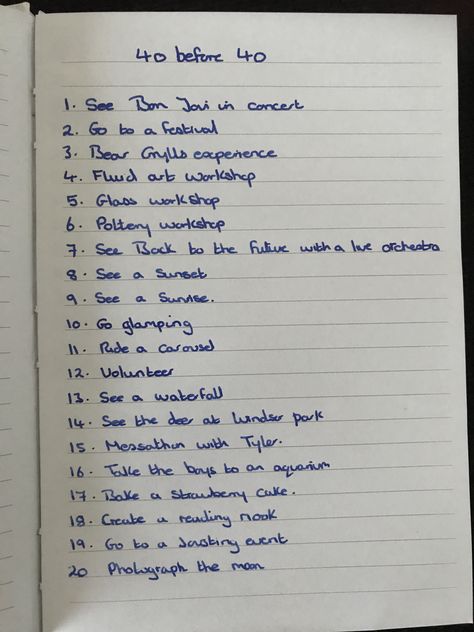 40 before 40
1. See Bon Jovi in concert
2. Go to a festival
3. Bear Grylls experience
4. Fluid art workshop
5. Glass workshop
6. Pottery workshop
7. See Back to the Future with a live orchestra
8. See a Sunset
9. See a Sunrise.
10. Go glamping
11. Ride a carousel
12. Volunteer
13. See a waterfall
14. See the deer at Windsor park
15. Messathon with Tyler.
16. Take the boys to an aquarium
17. Bake a strawberry cake.
18. Create a reading nook
19. Go to a Jasting event
20 Photograph the moon